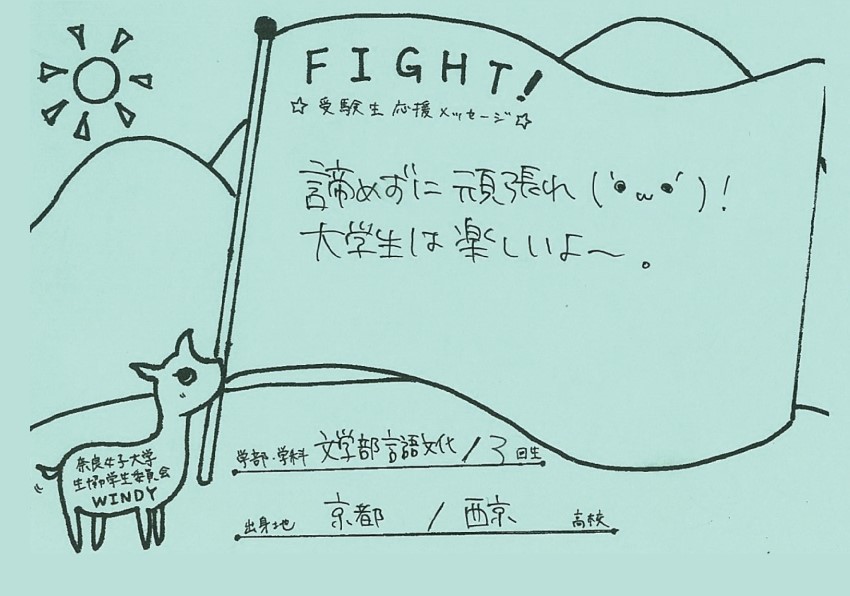 FIGHT!
☆受験生応援メッセージ☆
諦めずに頑張れ(´•ω•`)!
大学生は楽しいよ〜。
学部・学科 文学部言語文化/3回生
出身地 京都/西京 高校
奈良女子大学
生協学生委員会
WINDY